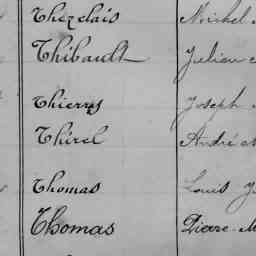 Thezelais Michel
Thibault Julien
Thierry Joseph
Thirel André
Thomas Louis
Thomas Pierre M